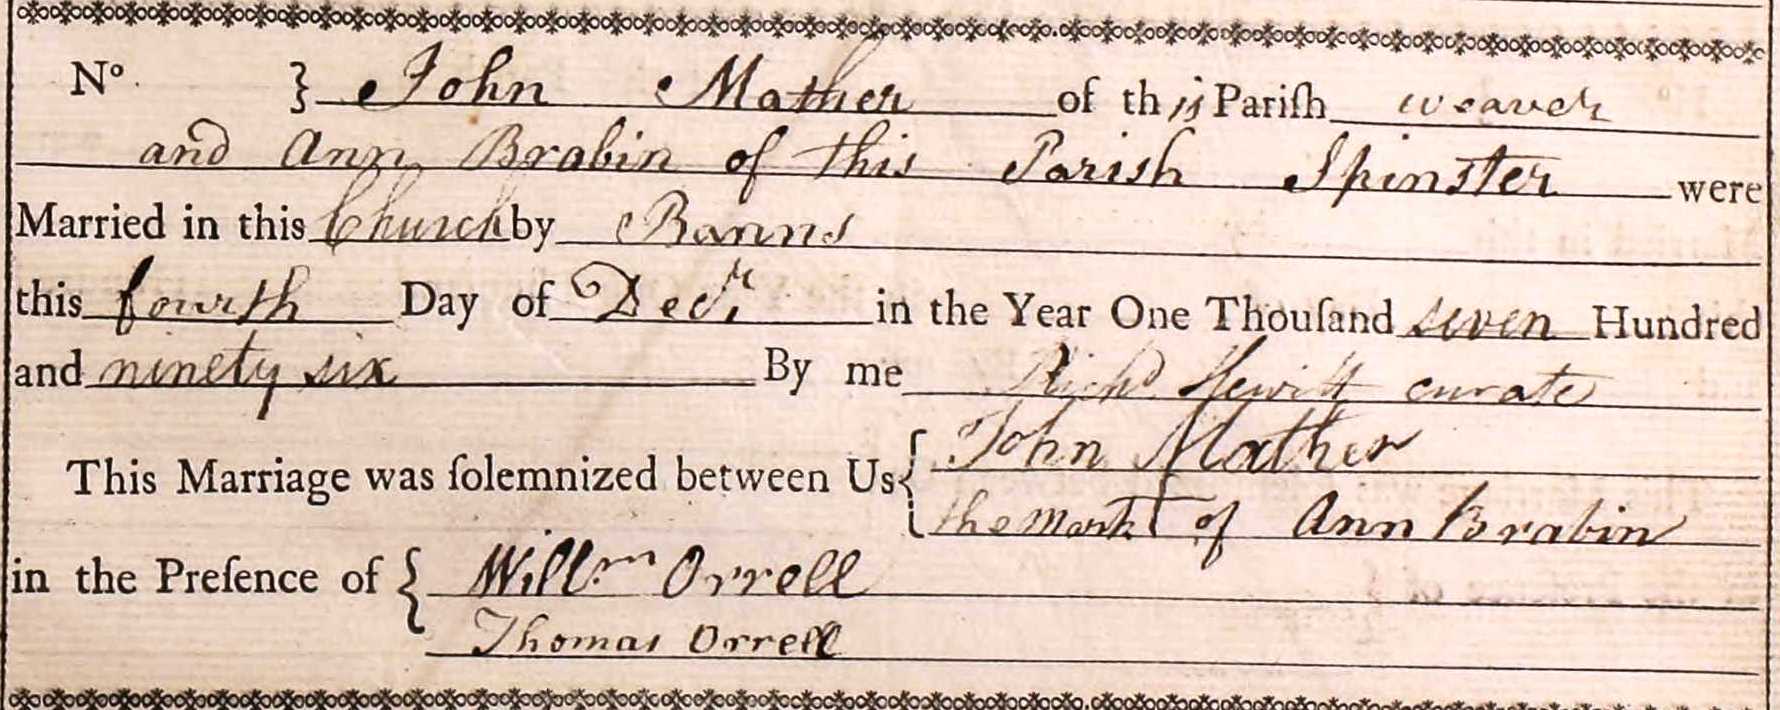 No. } John Mather of this Pariſh weaver
and Ann Brabin of this Parish Spinster were
Married in this Church by Banns
this fourth Day of Decr. in the Year One Thouſand seven Hundred
and ninety six By me Richd Hewitt curate
This Marriage was ſolemnized between Us { John Mather
the mark + of Ann Brabin
in the Preſence of { Willm Orrell
Thomas Orrell